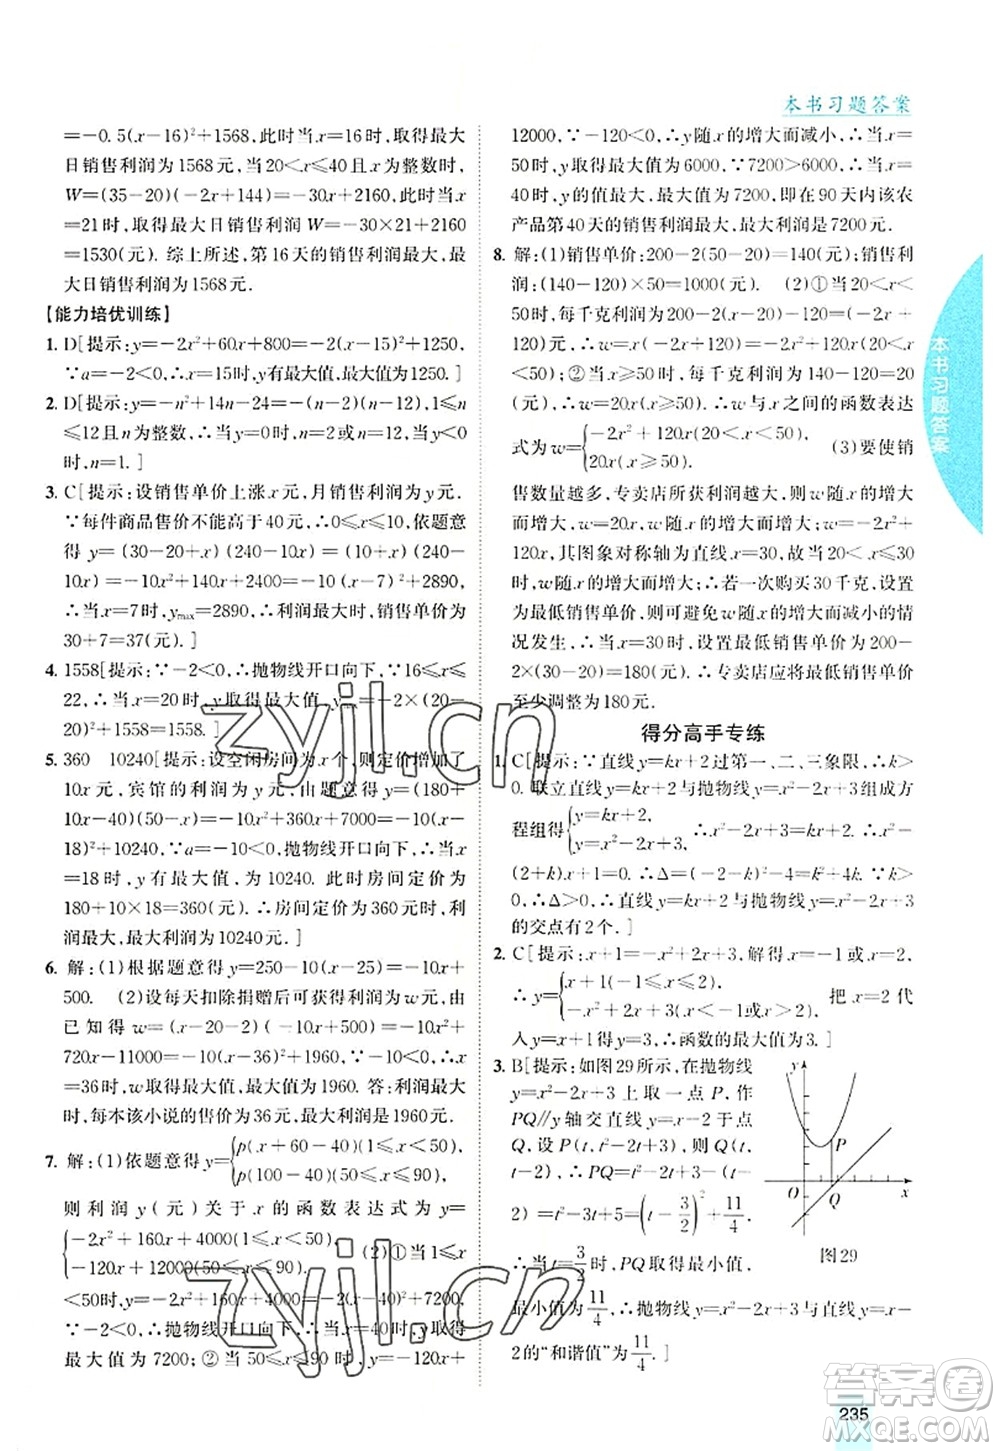 本书习题答案
=-0.5(x-16)²+1568,此时当x=16时,取得最大
日销售利润为1568元,当20<x≤40且x为整数时,
W=(35-20)(-2x+144)=-30x+2160,此时当x=
21时,取得最大日销售利润W=-30×21+2160
=1530(元). 综上所述,第16天的销售利润最大,最
大日销售利润为1568元.
【能力培优训练】
1. D[提示:y=-2x²+60x+800=-2(x-15)²+1250,
∵a=-2<0,∴当x=15时,y有最大值,最大值为1250.]
2. D[提示:y=-n²+14n-24=-(n-2)(n-12),1≤n
≤12且n为整数,∴当y=0时,n=2或n=12,当y<0
时,n=1.]
3. C[提示:设销售单价上涨x元,月销售利润为y元.
∵每件商品售价不能高于40元,∴0≤x≤10,依题意
得 y=(30-20+x)(240-10x)=(10+x)(240-
10x)=-10x²+140x+2400=-10(x-7)²+2890,
∴当x=7时,ymax=2890,∴利润最大时,销售单价为
30+7=37(元).]
4. 1558[提示:∵-2<0,∴抛物线开口向下,∵4≤x≤
22,∴当x=20时,y取得最大值,y=-2×(20-
20)²+1558=1558.]
5. 360 10240[提示:设空闲房间为x个,则定价增加了
10x元,宾馆的利润为y元,由题意得y=(180+
10x-40)(50-x)=-10x²+360x+7000=-10(x-
18)²+10240,∵a=-10<0,∴抛物线开口向下,∴当x
=18时,y有最大值,为10240. 此时房间定价为
180+10×18=360(元).∴房间定价为360元时,利
润最大,最大利润为10240元.]
6. 解:(1)根据题意得y=250-10(x-25)=-10x+
500. (2)设每天扣除捐赠后可获得利润为w元,由
已知得w=(x-20-2)(-10x+500)=-10x²+
720x-11000=-10(x-36)²+1960,∵-10<0,∴x
=36时,w取得最大值,最大值为1960. 答:利润最大
时,每本该小说的售价为36元,最大利润是1960元.
7. 解:(1)依题意得y={p(x+60-40)(1≤x<50),
p(90-40)(50≤x≤90),
则利润y(元)关于x的函数表达式为y=
{-2x²+160x+4000(1≤x<50),
-120x+12000(50≤x≤90). (2)①当1≤x
<50时,y=-2x²+160x+4000=-2(x-40)²+7200,
∵-2<0,∴抛物线开口向下,∴当x=40时,y取得
最大值为7200;②当50≤x≤90时,y=-120x+
12000,∵-120<0,∴y随x的增大而减小,∴当x=
50时,y取得最大值为6000,∵7200>6000,∴当x=
40时,y的值最大,最大值为7200,即在90天内该农
产品第40天的销售利润最大,最大利润是7200元.
8. 解:(1)销售单价:200-2(50-20)=140(元);销售利
润:(140-120)×50=1000(元). (2)①当20<x≤
30时,∵每千克利润为200-2(x-20)-120=-2x+
120(元),∴w=(-2x+120)·x=-2x²+
120x;②当x≥30时,每千克利润为140-120=20
(元),w=20x.∴w与x之间的函数表达
式为w={-2x²+120x(20<x<30),
20x(x≥30). (3)要使销
售数量越多,专卖店所获得利润越大,则w随x的增大
而增大,∵w=20x,w随x的增大而增大;w=-2x²+
120x,其图象对称轴为直线x=30,∴当20<x≤30
时,w随x的增大而增大;∴若一次购买30千克,设置
为最低销售单价,则可避免w随x的增大而减小的情
况发生,∴当x=30时,设置最低销售单价为200-
2×(30-20)=180(元),∴专卖店应将最低销售单价
至少调整为180元.
得分高手专练
1. C[提示:∵直线y=kx+2过第一、二、三象限,∴k>
0. 联立直线y=kx+2与抛物线y=x²-2x+3组成方
程组得{y=kx+2,
y=x²-2x+3, ∴x²-2x+3=kx+2,∴x²-
(2+k)x+1=0.∴Δ=(-2-k)²-4=k²+4k.
∵k>0,∴Δ>0,∴直线y=kx+2与抛物线y=x²-2x+3
的交点有2个.]
2. C[提示:x+1=-x²+2x+3,解得x=-1或x=2.
∴y={x+1(-1≤x≤2),
-x²+2x+3(x<-1或x>2). 把x=2代
入y=x+1得y=3,∴函数的最大值为3.]
3. B[提示:如图29所示,在抛物线
y=x²-2x+3上取一点P,作
PQ∥y轴交直线y=x-2于点
Q,设P(t,t²-2t+3),则Q(t,
t-2),∴PQ=t²-2t+3-(t-
2)=t²-3t+5=(t-3/2)²+11/4,
∴当t=3/2时,PQ有最小值,
最小值为11/4,∴抛物线y=x²-2x+3与直线y=x-
2的“和谐值”为11/4.]
y
P
O
Q
x
图29
本书习题答案
235
zyjl.cn
zyjl.cn
答案圈
MXQE.COM